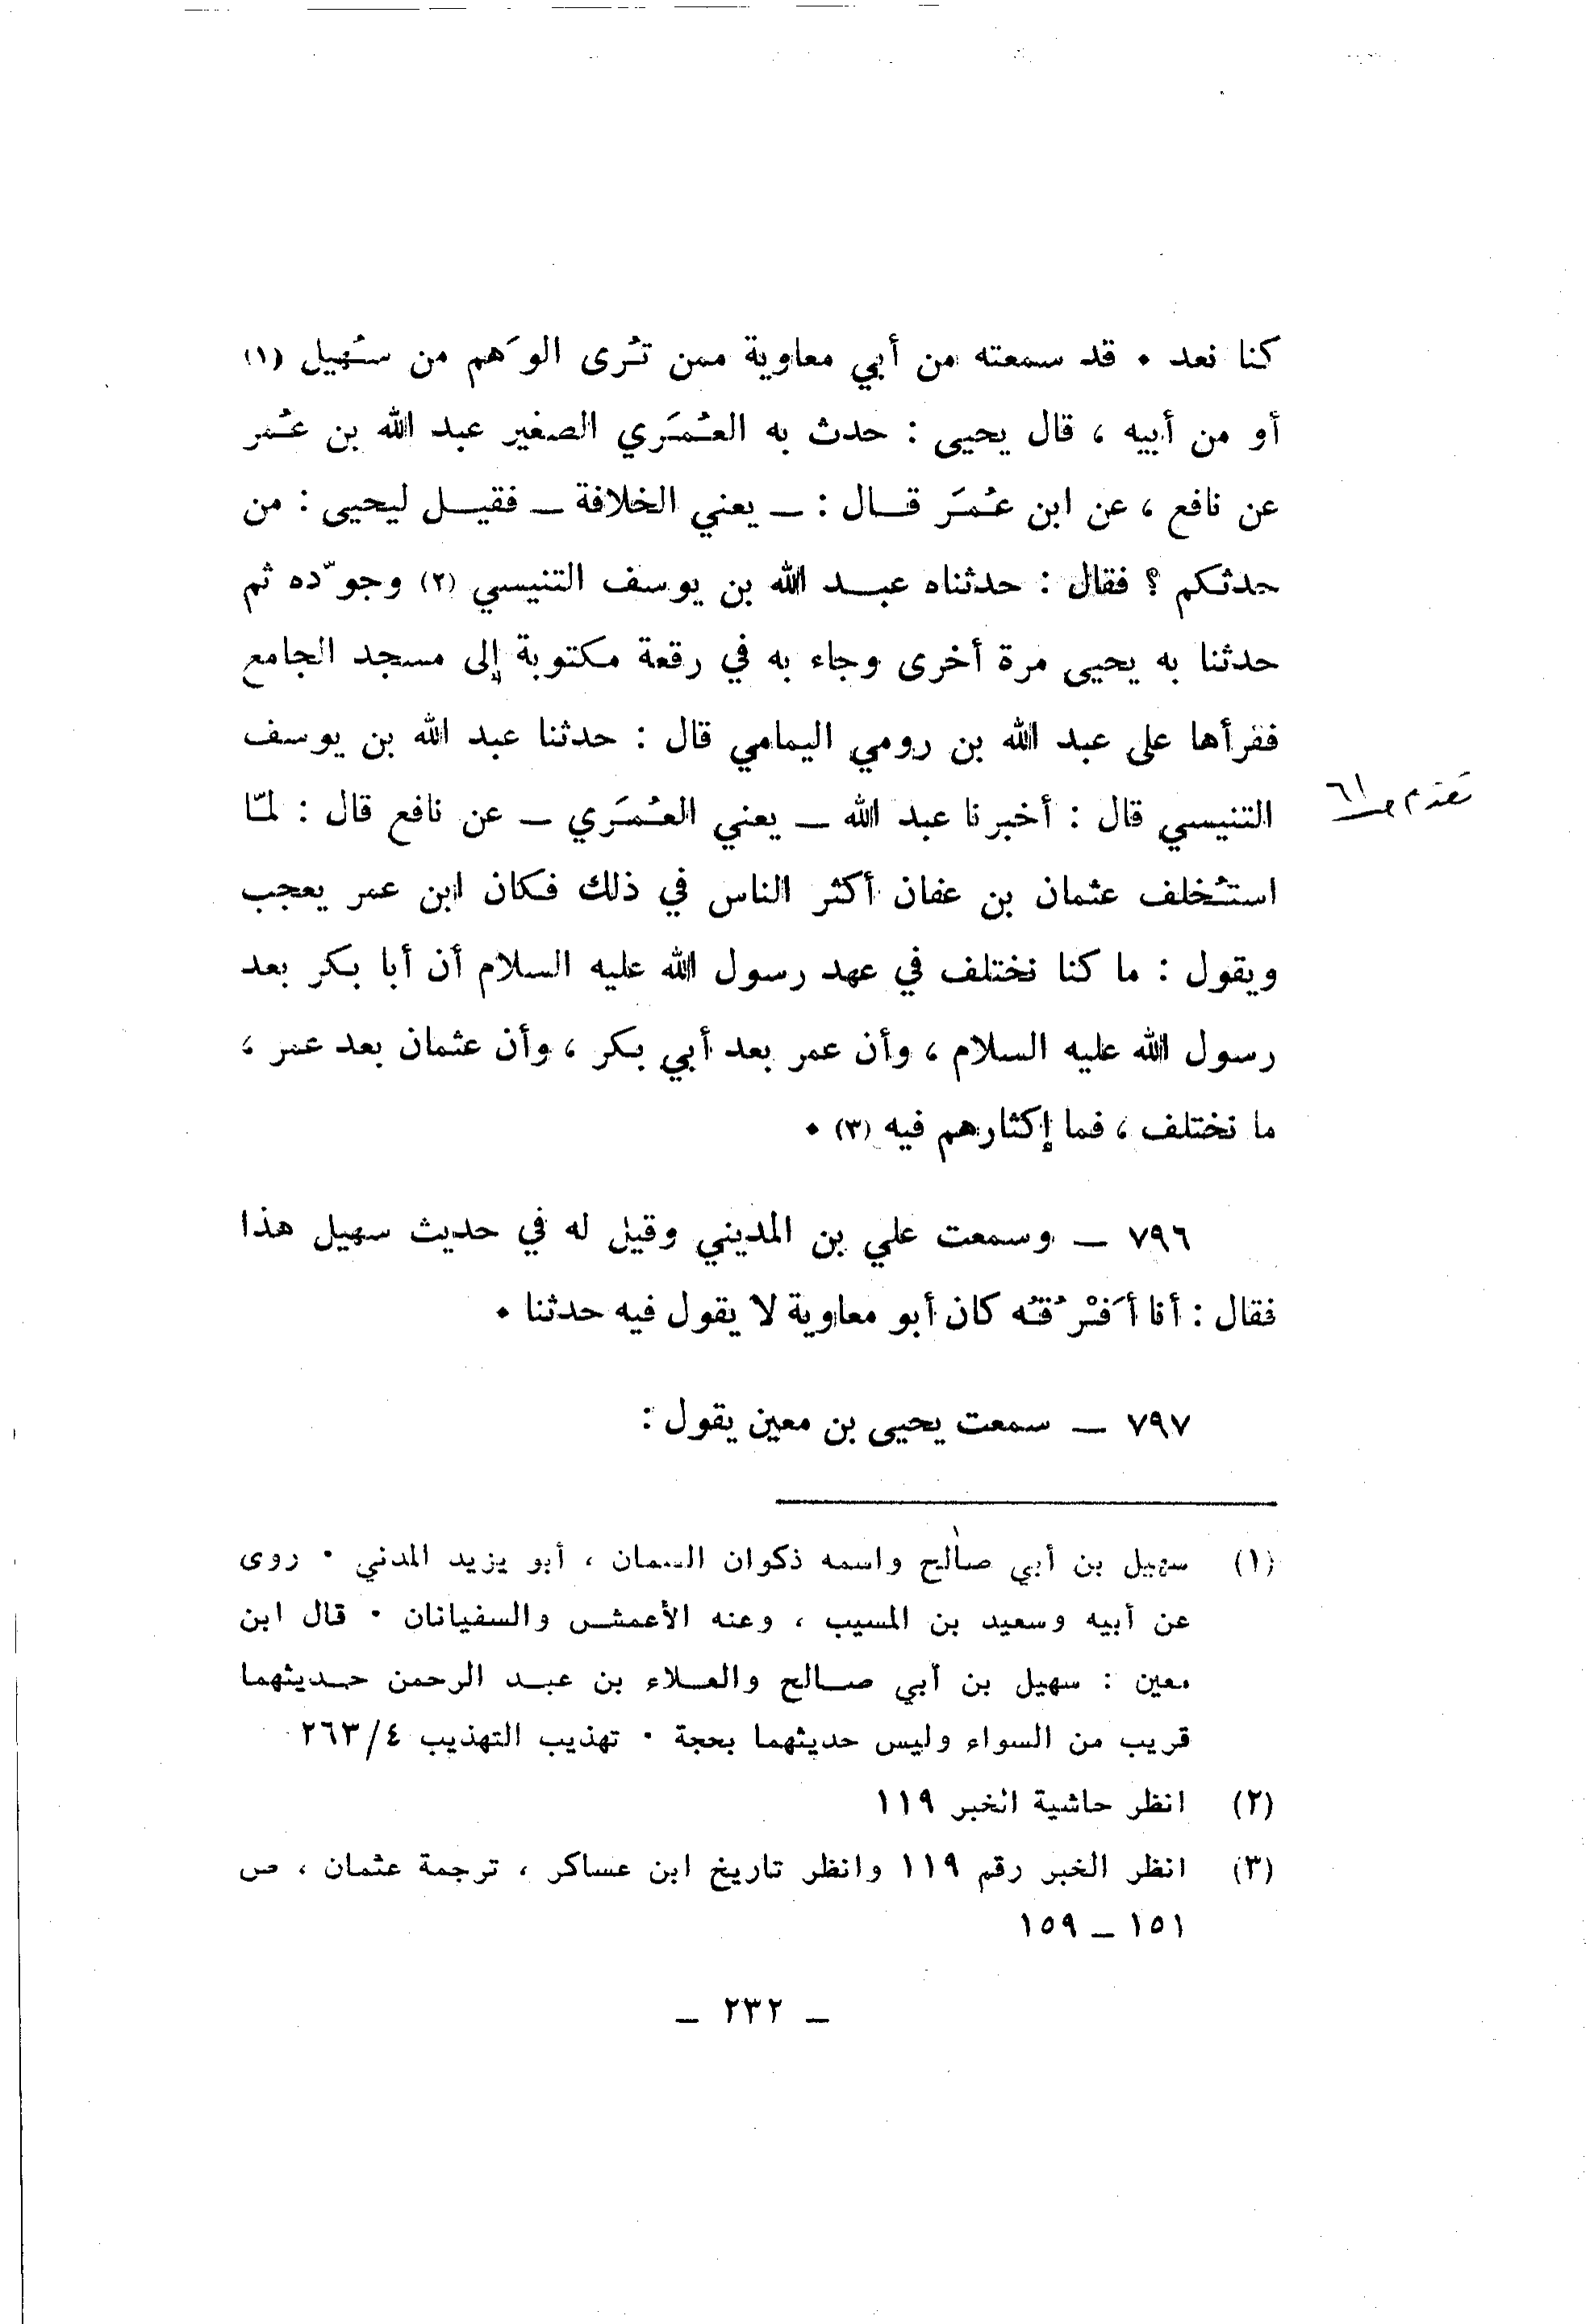 كنا نعد • قد سمعته من أبي معاوية ممن تُرى الوَهم من سُهيل (١)
أو من أبيه ، قال يحيى : حدث به العُمَري الصغير عبد الله بن عُمر
عن نافع ، عن ابن عُمَر قال : ــ يعني الخلافة ــ فقيل ليحيى : من
حدثكم ؟ فقال : حدثناه عبد الله بن يوسف التنيسي (٢) وجوّده ثم
حدثنا به يحيى مرة أخرى وجاء به في رقعة مكتوبة إلى مسجد الجامع
فقرأها على عبد الله بن رومي اليمامي قال : حدثنا عبد الله بن يوسف
التنيسي قال : أخبرنا عبد الله ــ يعني العُمَري ــ عن نافع قال : لمّا
تقدم ص ٦١
استُخلف عثمان بن عفان أكثر الناس في ذلك فكان ابن عمر يعجب
ويقول : ما كنا نختلف في عهد رسول الله عليه السلام أن أبا بكر بعد
رسول الله عليه السلام ، وأن عمر بعد أبي بكر ، وأن عثمان بعد عمر ،
ما نختلف ، فما إكثارهم فيه (٣) •
٧٩٦ ــ وسمعت علي بن المديني وقيل له في حديث سهيل هذا
فقال : أنا أَفْرُقُه كان أبو معاوية لا يقول فيه حدثنا •
٧٩٧ ــ سمعت يحيى بن معين يقول :
(١) سهيل بن أبي صالح واسمه ذكوان السمان ، أبو يزيد المدني • روى
عن أبيه وسعيد بن المسيب ، وعنه الأعمش والسفيانان • قال ابن
معين : سهيل بن أبي صالح والعلاء بن عبد الرحمن حديثهما
قريب من السواء وليس حديثهما بحجة • تهذيب التهذيب ٢٦٣/٤
(٢) انظر حاشية الخبر ١١٩
(٣) انظر الخبر رقم ١١٩ وانظر تاريخ ابن عساكر ، ترجمة عثمان ، ص
١٥١ ــ ١٥٩
ــ ٢٣٢ ــ